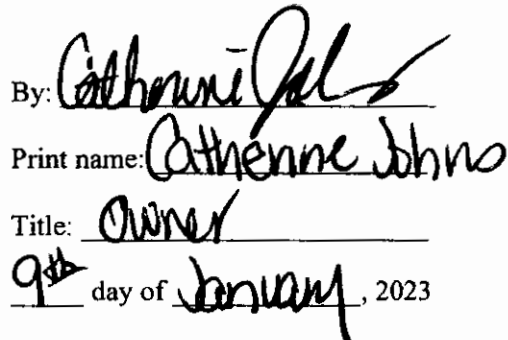 By: Catherine Johns
Print name: Catherine Johns
Title: Owner
9th day of January, 2023